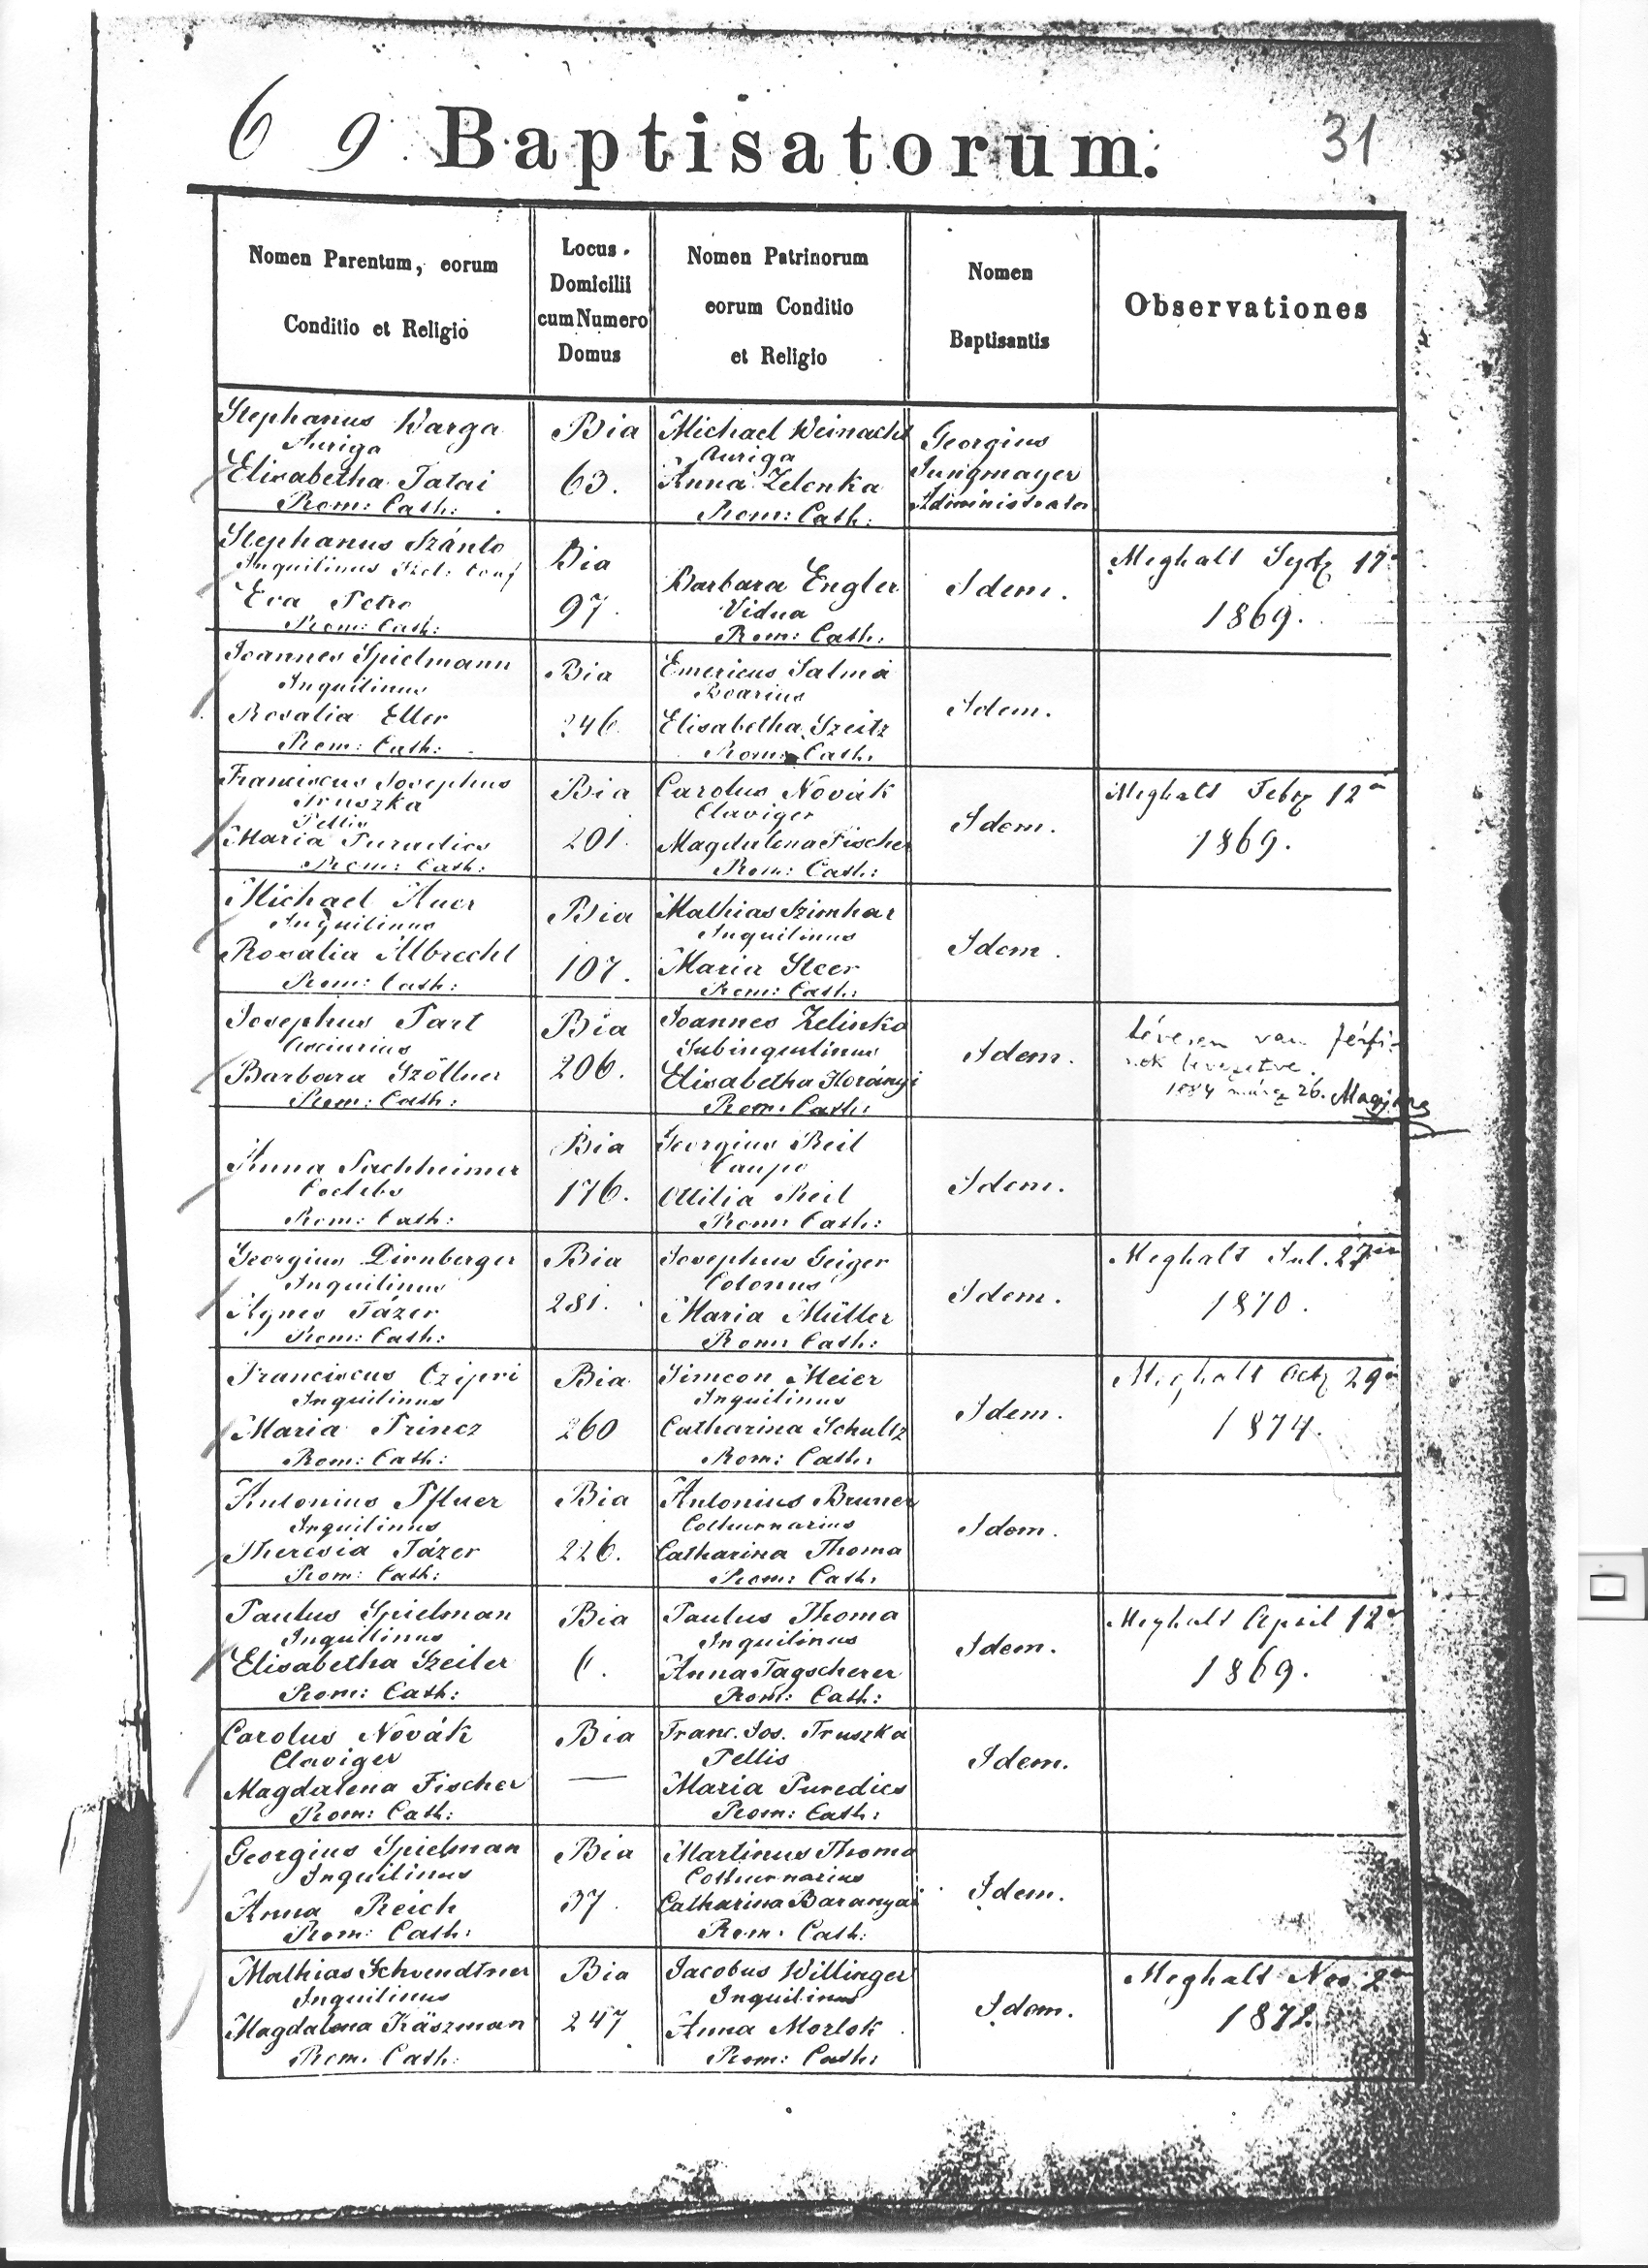 6 9. Baptisatorum. 31
Nomen Parentum, eorum
Conditio et Religio
Locus
Domicilii
cum Numero
Domus
Nomen Patrinorum
eorum Conditio
et Religio
Nomen
Baptisantis
Observationes
Stephanus Varga
Auriga
Elisabetha Tatai
Rom: Cath:
Bia
63.
Michael Weinacht
Auriga
Anna Zelenka
Rom: Cath:
Georgius
Jungmayer
Administrator
Stephanus Szánto
Inquilinus Hel: Conf
Eva Petro
Rom: Cath:
Bia
97.
Barbara Engler
Vidua
Rom: Cath:
Idem.
Meghalt 17
1869.
Joannes Spielmann
Inquilinus
Rosalia Eller
Rom: Cath:
Bia
246.
Emericus Salma
Boarius
Elisabetha Szeitz
Rom: Cath:
Idem.
Franciscus Josephus
Truszka
Pellio
Maria Puredics
Rom: Cath:
Bia
201.
Carolus Novák
Claviger
Magdalena Fischer
Rom: Cath:
Idem.
Meghalt Febr 12
1869.
Michael Auer
Inquilinus
Rosalia Albrecht
Rom: Cath:
Bia
107.
Mathias Szimhar
Inquilinus
Maria Steer
Rom: Cath:
Idem.
Josephus Part
Asciarius
Barbara Szöllner
Rom: Cath:
Bia
206.
Joannes Zelinka
Subinquilinus
Elisabetha Korányi
Rom: Cath:
Idem.
tévesen van férfi-
nak bevezetve.
1884 márcz 26.
Anna Sachheimer
Coelebs
Rom: Cath:
Bia
176.
Georgius Reil
Caupo
Ottilia Reil
Rom: Cath:
Idem.
Georgius Dirnberger
Inquilinus
Agnes Tázer
Rom: Cath:
Bia
281.
Josephus Geiger
Colonus
Maria Müller
Rom: Cath:
Idem.
Meghalt Jul. 27
1870.
Franciscus Czipri
Inquilinus
Maria Princz
Rom: Cath:
Bia
260
Simeon Meier
Inquilinus
Catharina Schultz
Rom: Cath:
Idem.
Meghalt Oct 29
1874.
Antonius Pfluer
Inquilinus
Theresia Tázer
Rom: Cath:
Bia
226.
Antonius Bruner
Cothurnarius
Catharina Thoma
Rom: Cath:
Idem.
Paulus Spielman
Inquilinus
Elisabetha Szeiler
Rom: Cath:
Bia
Paulus Thoma
Inquilinus
Anna Tagscherer
Rom: Cath:
Idem.
Meghalt April 12
1869.
Carolus Novák
Claviger
Magdalena Fischer
Rom: Cath:
Bia
—
Franc. Jos. Truszka
Pellis
Maria Puredics
Rom: Cath:
Idem.
Georgius Spielman
Inquilinus
Anna Reich
Rom: Cath:
Bia
37.
Martinus Thoma
Cothurnarius
Catharina Baranyai
Rom: Cath:
Idem.
Mathias Schvendtner
Inquilinus
Magdalena Käszman
Rom: Cath:
Bia
247
Jacobus Willinger
Inquilinus
Anna Morlok
Rom: Cath:
Idem.
Meghalt Nov. 2
187